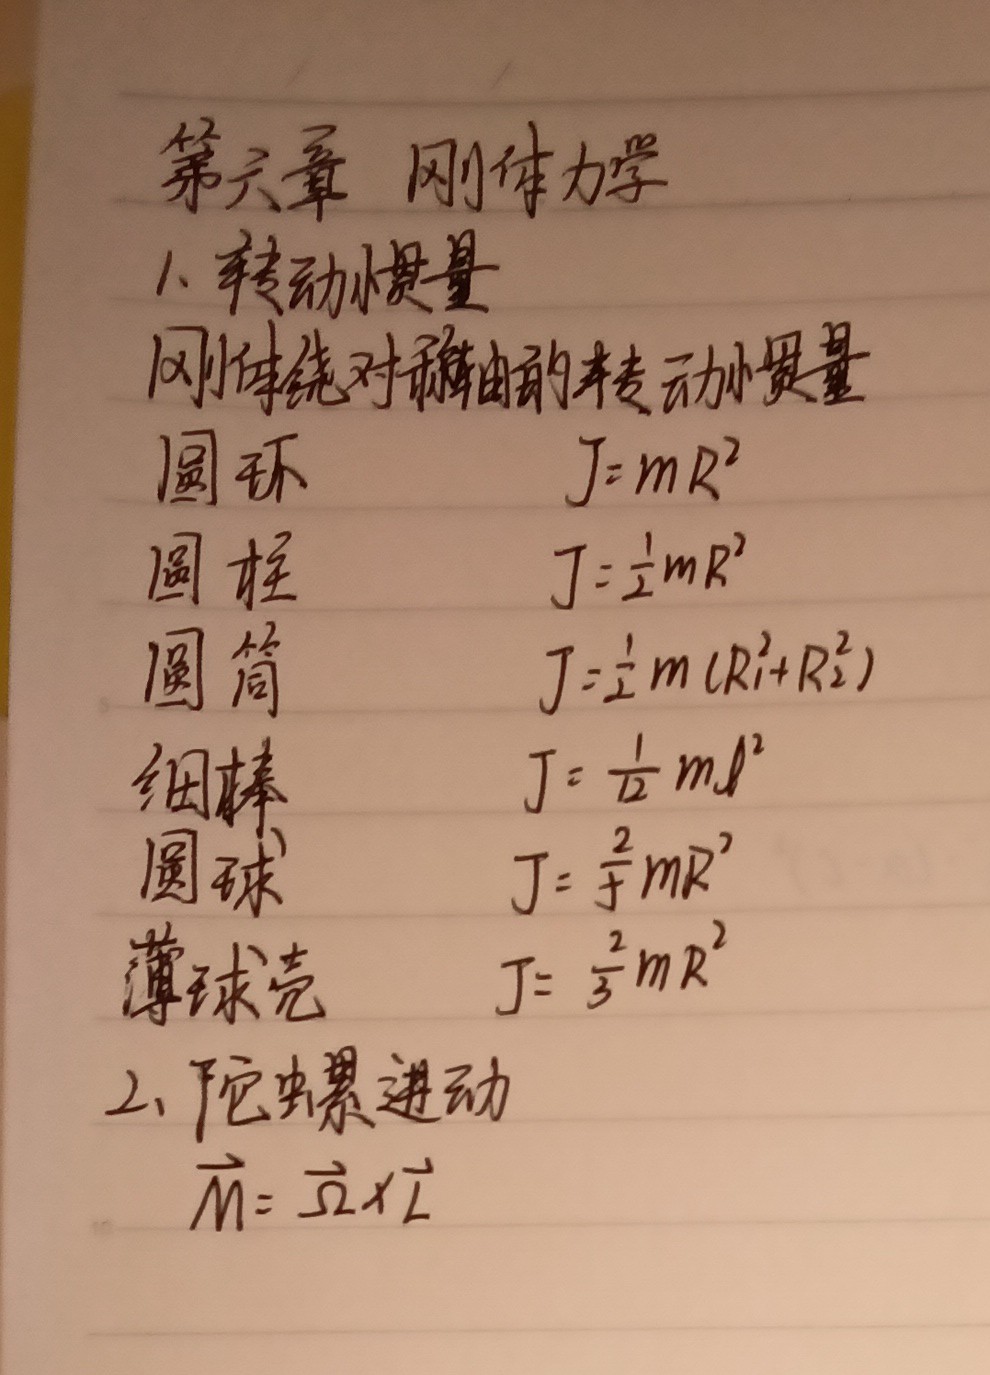 第六章 刚体力学
1、转动惯量
刚体绕对称轴的转动惯量
圆环 J=mR²
圆柱 J=½mR²
圆筒 J=½m(R₁²+R₂²)
细棒 J=1/12 ml²
圆球 J=2/5 mR²
薄球壳 J=2/3 mR²
2、陀螺进动
M⃗=Ω⃗×L⃗